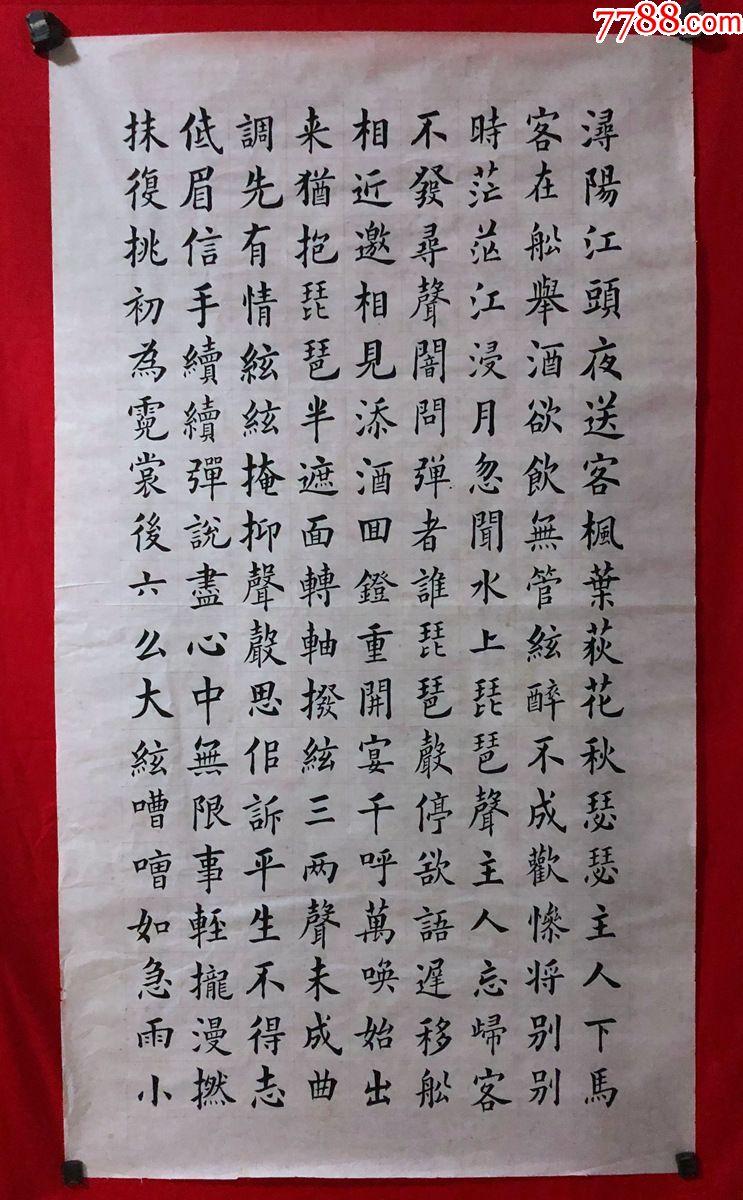 7788.com
潯陽江頭夜送客楓葉荻花秋瑟瑟主人下馬
客在舩舉酒欲飲無管絃醉不成歡慘将别别
時茫茫江浸月忽聞水上琵琶聲主人忘歸客
不發尋聲闇問弹者誰琵琶聲停欲語遅移舩
相近邀相見添酒回鐙重開宴千呼萬喚始出
来猶抱琵琶半遮面轉軸撥絃三两聲未成曲
調先有情絃絃掩抑聲聲思佀訴平生不得志
低眉信手續續彈說盡心中無限事輕攏漫撚
抹復挑初為霓裳後六么大絃嘈嘈如急雨小